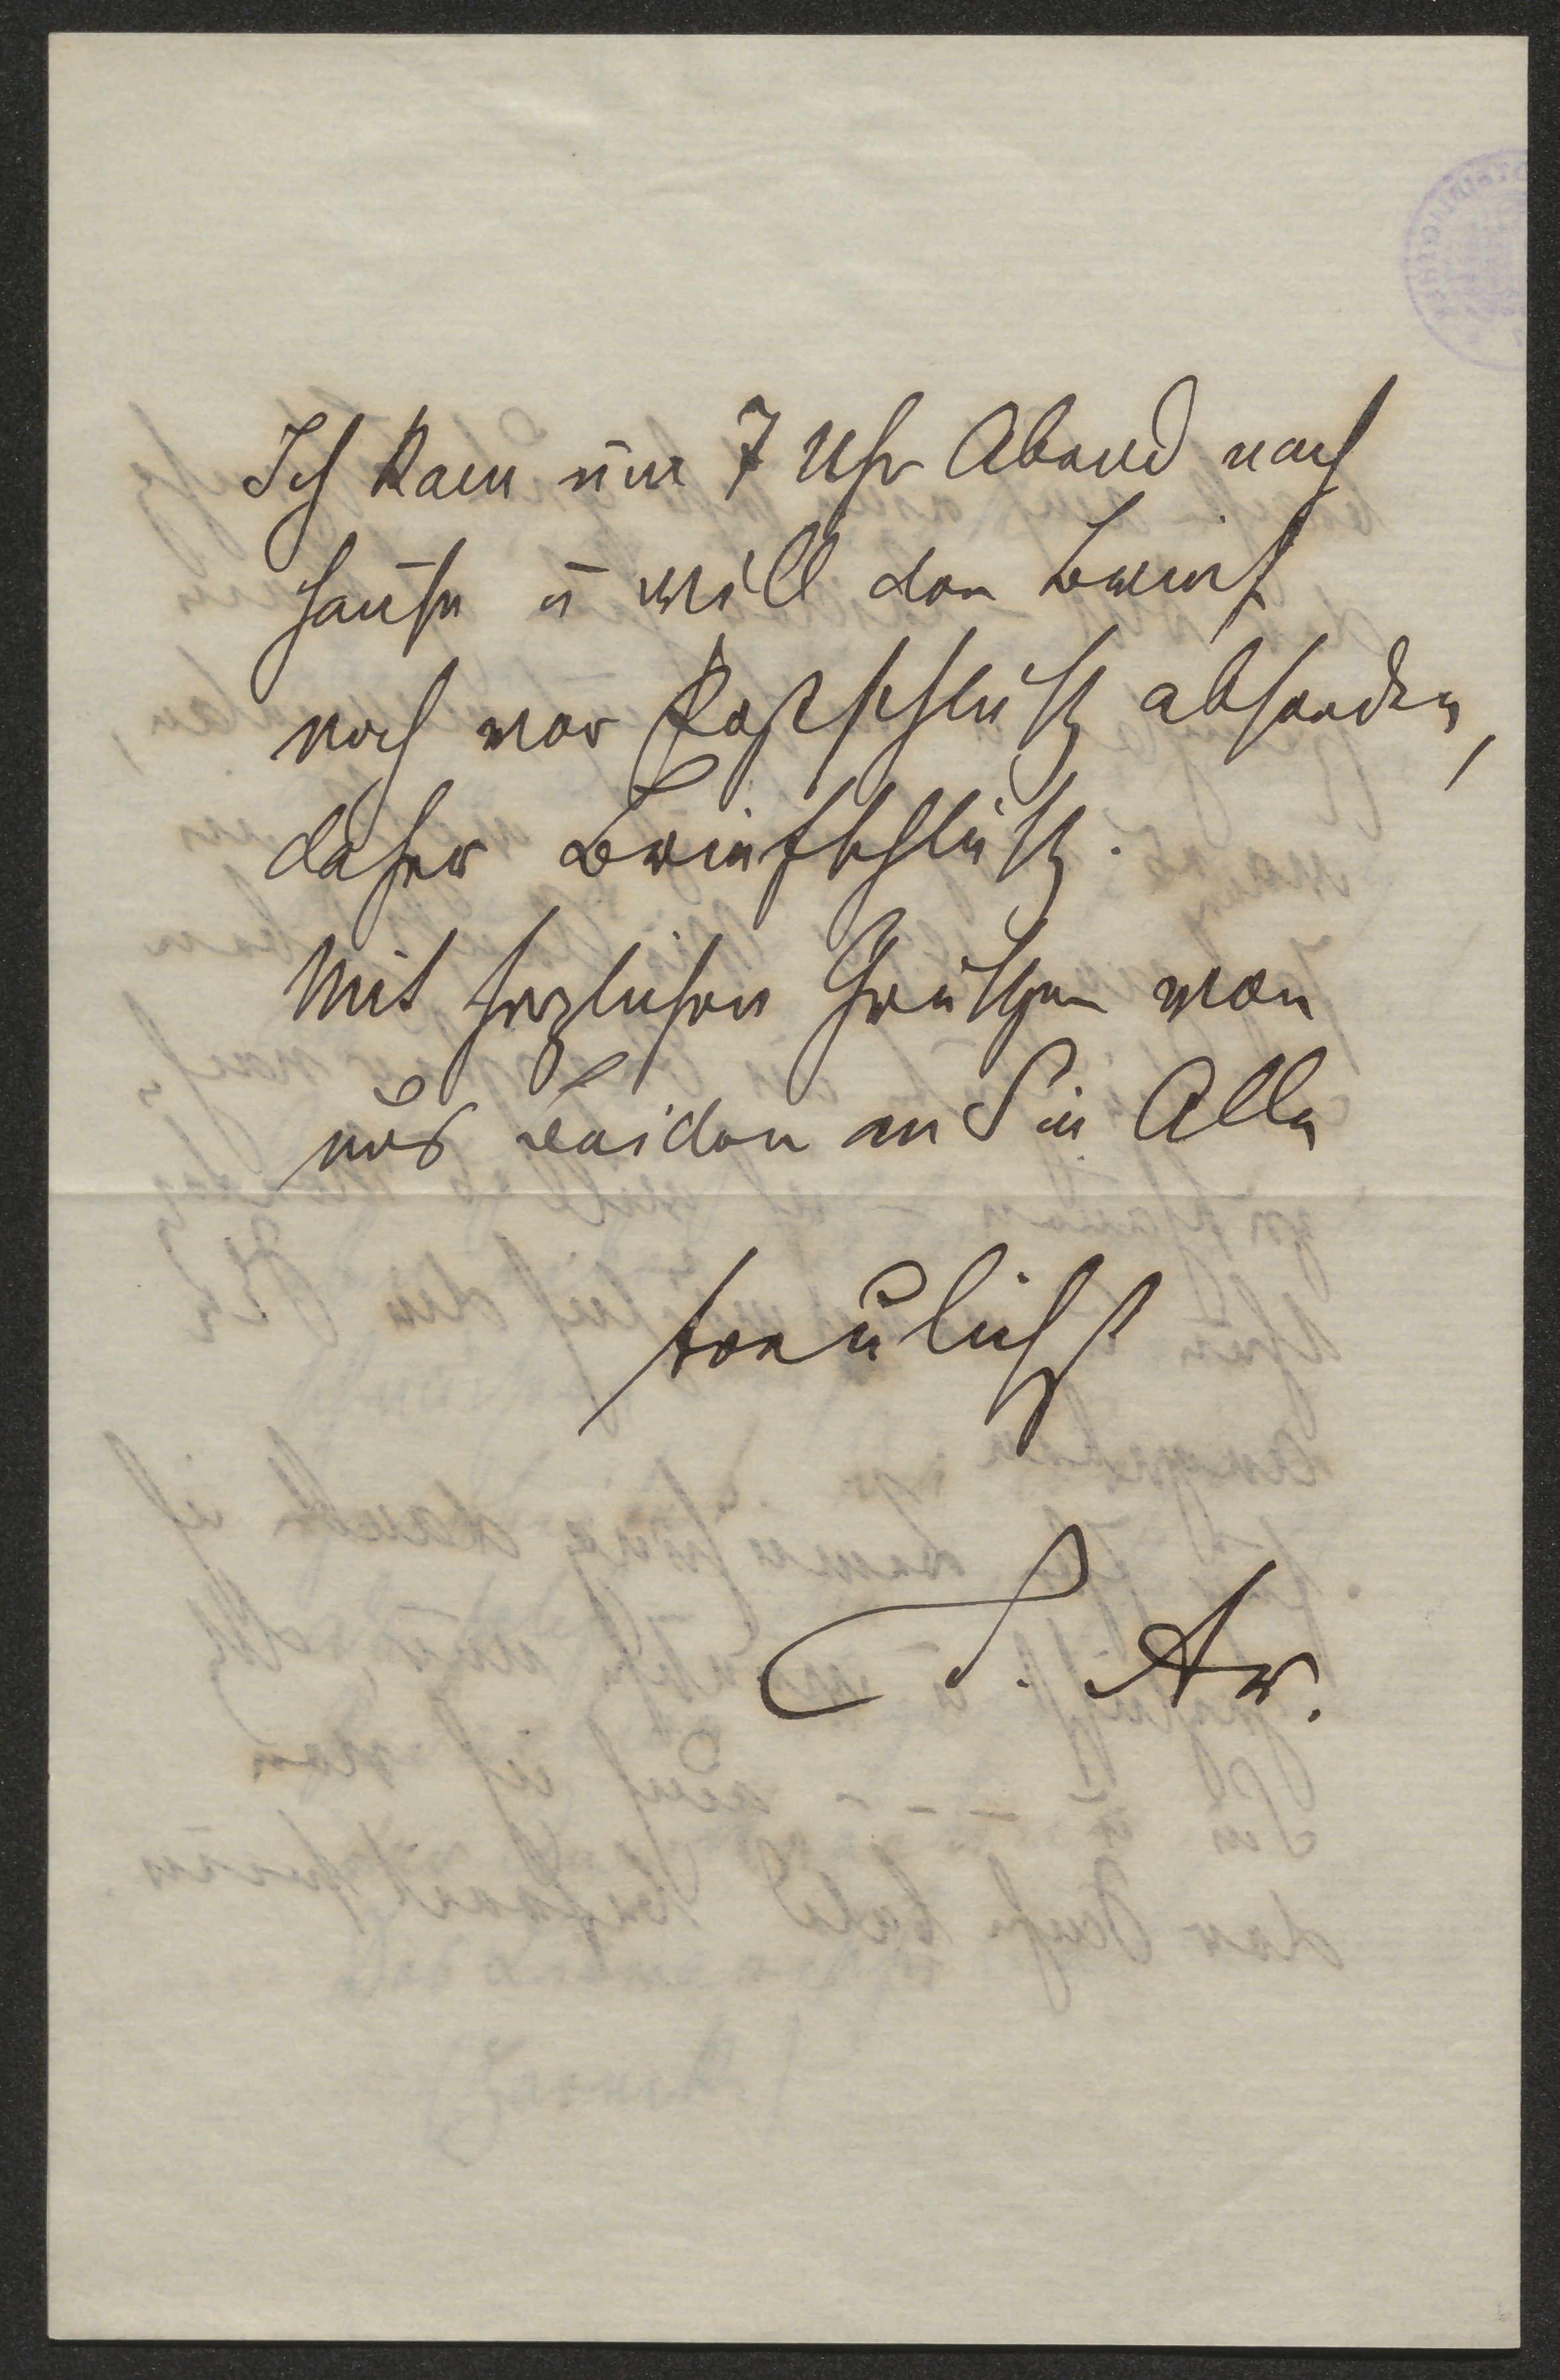 Ich kam um 7 Uhr Abend nach
Hause u will den Brief
noch vor Postschluß absenden,
daher Briefschluß.
Mit herzlichen Grüßen von
uns beiden an Sie Alle
treulichst
S. Ar.